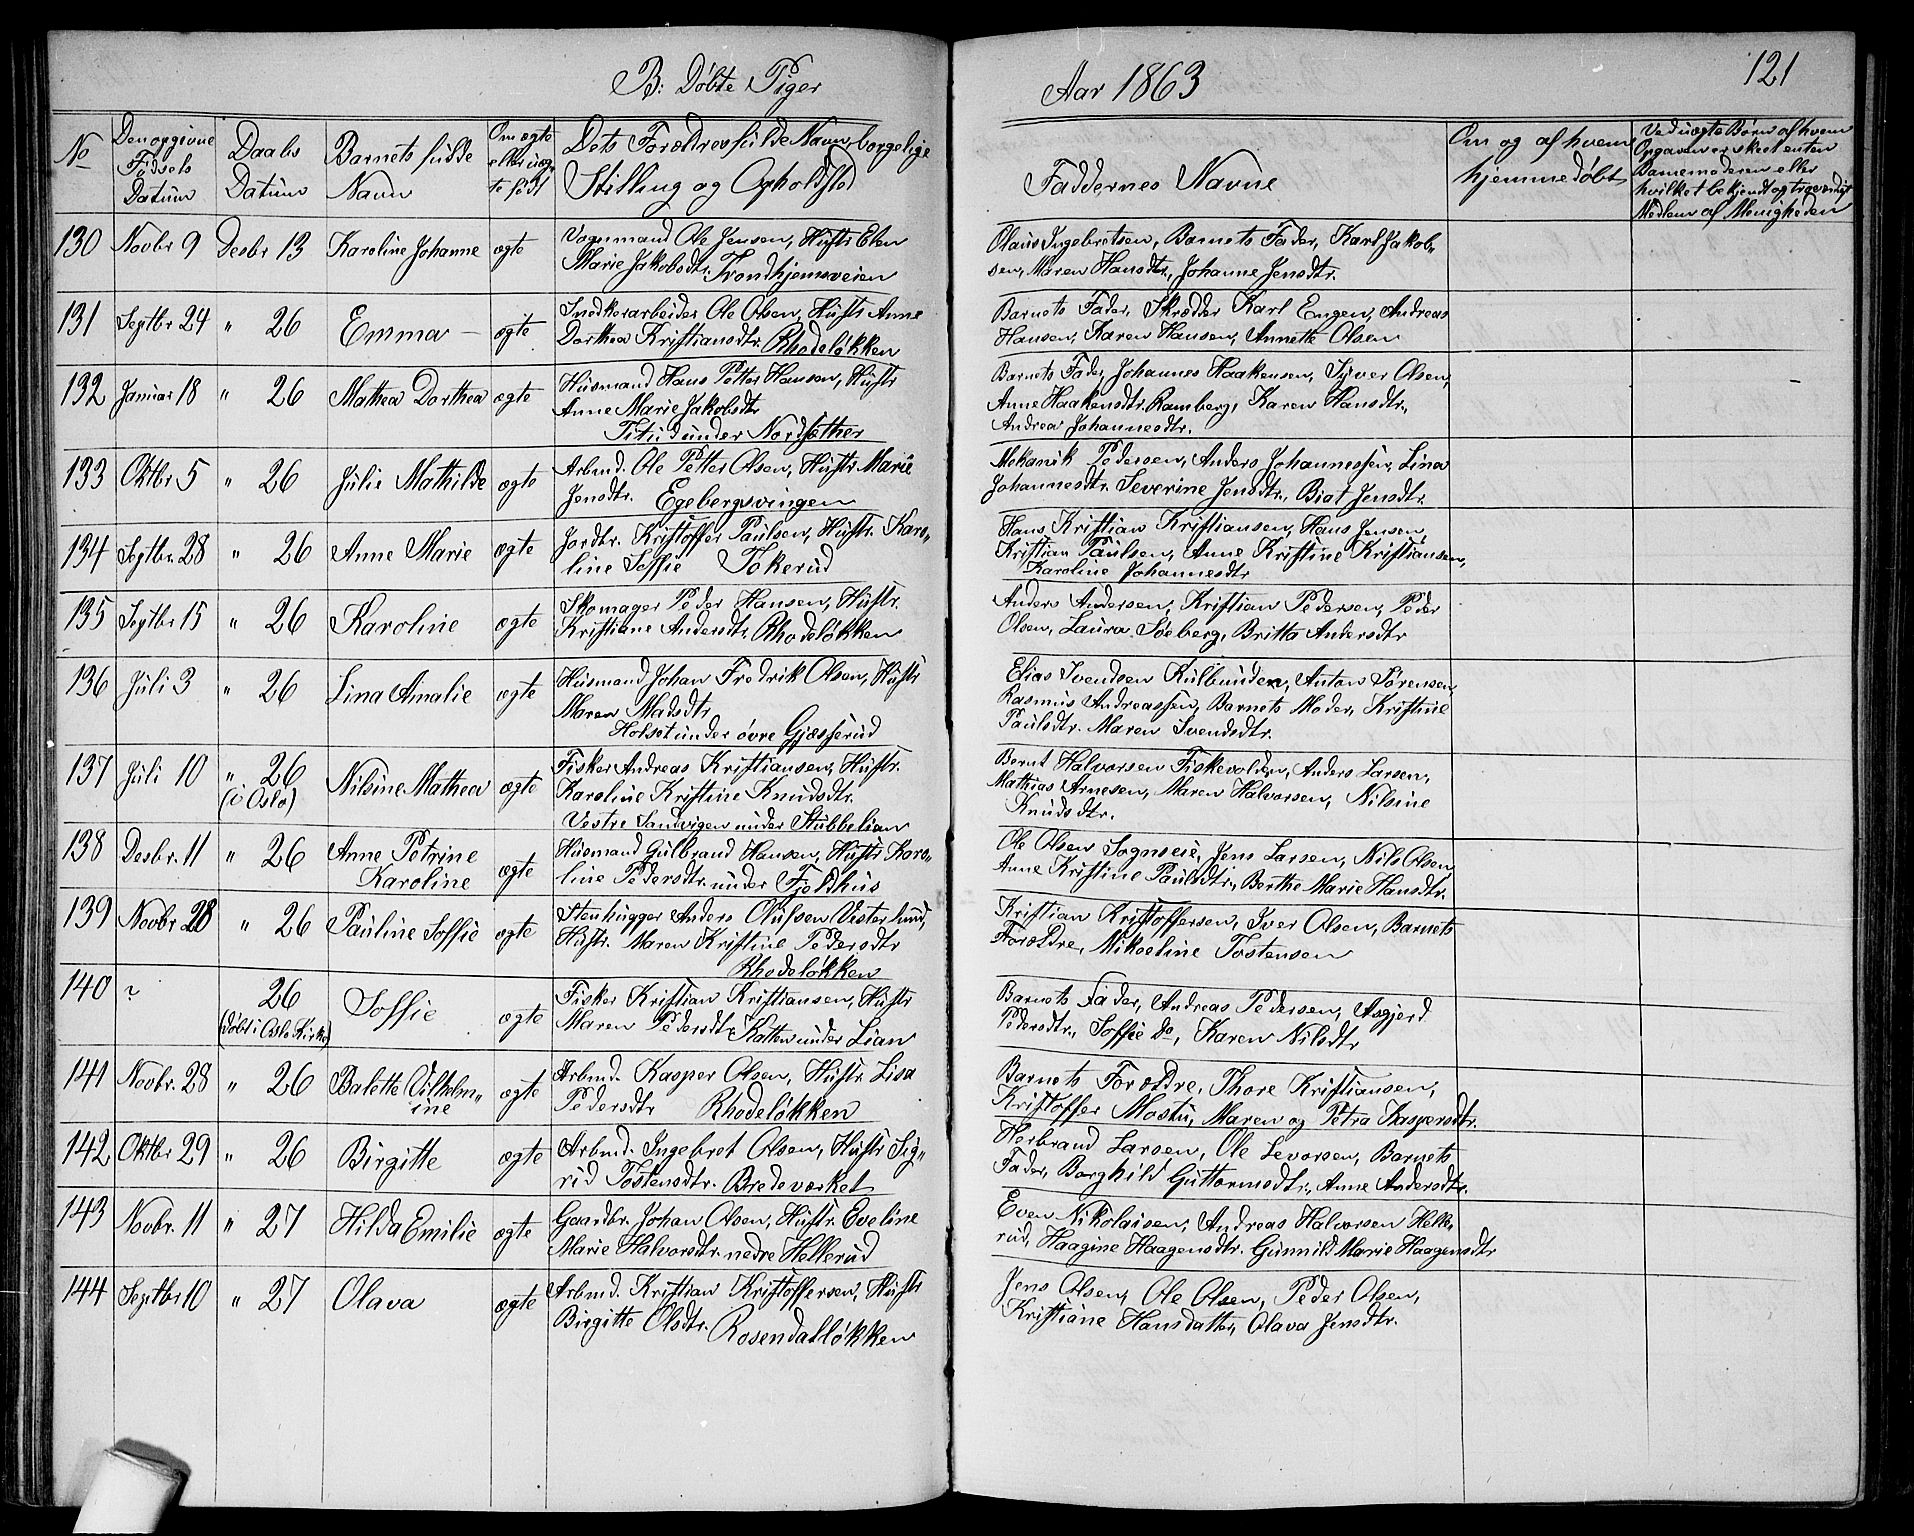 B. Døbte Piger
Aar 1863
121
No
Den opgivne Fødsels Datum
Daabs Datum
Barnets fulde Navn
Om ægte eller uægte født
Dets Forældres fulde Navn, borgelige Stilling og Opholdsted
Faddernes Navne
Om og af hvem hjemmedøbt
Ved uægte Børn af hvem Opgaven er skeet enten Barnemoderen eller hvilket bekjendt og troværdigt Medlem af Menigheden
130 Novbr 9 Desbr 13 Karoline Johanne ægte Vognmand Ole Jensen, Hustr Elen
Marie Jakobsdtr. Trondhjemsveien
Olaus Ingebretsen, Barnets Fader, Karl Jakob-
sen, Maren Hansdtr., Johanne Jensdtr.
131 Septbr 24 " 26 Emma ægte Snedkerarbeider Ole Olsen, Hustr Anne
Dorthea Kristiansdtr. Rhodeløkken
Barnets Fader, Skrædder Karl Engen, Andreas
Hansen, Karen Hansen, Annette Olsen
132 Januar 18 " 26 Mathea Dorthea ægte Husmand Hans Petter Hansen, Hustr
Anne Marie Jakobsdtr
under Nordsether
Barnets Fader, Johannes Haakensen, Syver Olsen,
Anne Haakensdtr. Ramberg, Karen Hansdtr.,
Andrea Johannesdtr.
133 Oktbr 5 " 26 Julie Mathilde ægte Arbmd. Ole Petter Olsen, Hustr Marie
Jensdtr. Egebergsvingen
Mekanik Pedersen, Anders Johannessen, Lina
Johannesdtr. Severine Jensdtr., Biat Jensdtr.
134 Septbr. 28 " 26 Anne Marie ægte Jordtr. Kristoffer Paulsen, Hustr. Karo-
line Soffie Tokerud
Hans Kristian Kristiansen, Hans Jensen,
Kristian Paulsen, Anne Kristine Kristiansen,
Karoline Johannesdtr
135 Septbr 15 " 26 Karoline ægte Skomager Peder Hansen, Hustr.
Kristiane Andersdtr. Rhodeløkken
Anders Andersen, Kristian Pedersen, Peder
Olsen, Laura Søeberg, Britta Andersdtr
136 Juli 3 " 26 Lina Amalie ægte Husmand Johan Fredrik Olsen, Hustr
Maren Madsdtr
Holset under øvre Gjæsserud
Elias Svendsen Kulbunden, Anton Sørensen,
Rasmus Andreassen, Barnets Moder, Kristine
Paulsdtr. Maren Svendsdtr.
137 Juli 10 " 26 (i Oslo) Nilsine Mathea ægte Fisker Andreas Kristiansen, Hustr.
Karoline Kristine Knudsdtr.
Vestre Sandvigen under Stubbelian
Bernt Halvorsen Fiskevolden, Anders Larsen,
Mathias Arnesen, Maren Halvorsen, Nilsine
Knudsdtr.
138 Desbr. 11 " 26 Anne Petrine Karoline ægte Husmand Gulbrand Hansen, Hustr Karo-
line Pedersdtr. under Fjeldhus
Ole Olsen Sognseie, Jens Larsen, Nils Olsen,
Anne Kristine Paulsdtr., Berthe Marie Hansdtr.
139 Novbr 28 " 26 Pauline Soffie ægte Stenhugger Anders Olufsen Vesterlund,
Hustr. Maren Kristine Pedersdtr
Rhodeløkken
Kristian Kristoffersen, Iver Olsen, Barnets
Forældre, Mikoeline Tostensen
140 ? 26 (døbt i Oslo Kirke) Soffie ægte Fisker Kristian Kristiansen, Hustr
Maren Pedersdtr. Katten under Lian
Barnets Fader, Andreas Pedersen, Asgjerd
Pedersdtr., Soffie do, Karen Nilsdtr
141 Novbr. 28 " 26 Balette Vilhelm-ine ægte Arbmd. Kasper Olsen, Hustr. Lisa
Pedersdtr Rhodeløkken
Barnets Forældre, Thore Kristiansen,
Kristoffer Mostu, Maren og Petra Kaspersdtr.
142 Oktbr 29 " 26 Birgitte ægte Arbmd. Ingebret Olsen, Hustr Sig-
rid Tostensdtr. Bredeværket
Herbrand Larsen, Ole Levorsen, Barnets
Fader, Borghild Guttormsdtr., Anne Andersdtr.
143 Novbr. 11 " 27 Hilda Emilie ægte Gaardbr. Johan Olsen, Hustr. Eveline
Marie Halvorsdtr. nedre Hellerud
Even Nikolaisen, Andreas Halvorsen Helle-
rud, Haagine Haagensdtr. Gunnild Marie Haagensdtr
144 Septbr 10 " 27 Olava ægte Arbmd. Kristian Kristoffersen, Hustr
Birgitte Olsdtr. Rosendalløkken
Jens Olsen, Ole Olsen, Peder Olsen,
Kristiane Hansdatter, Olava Jensdtr.